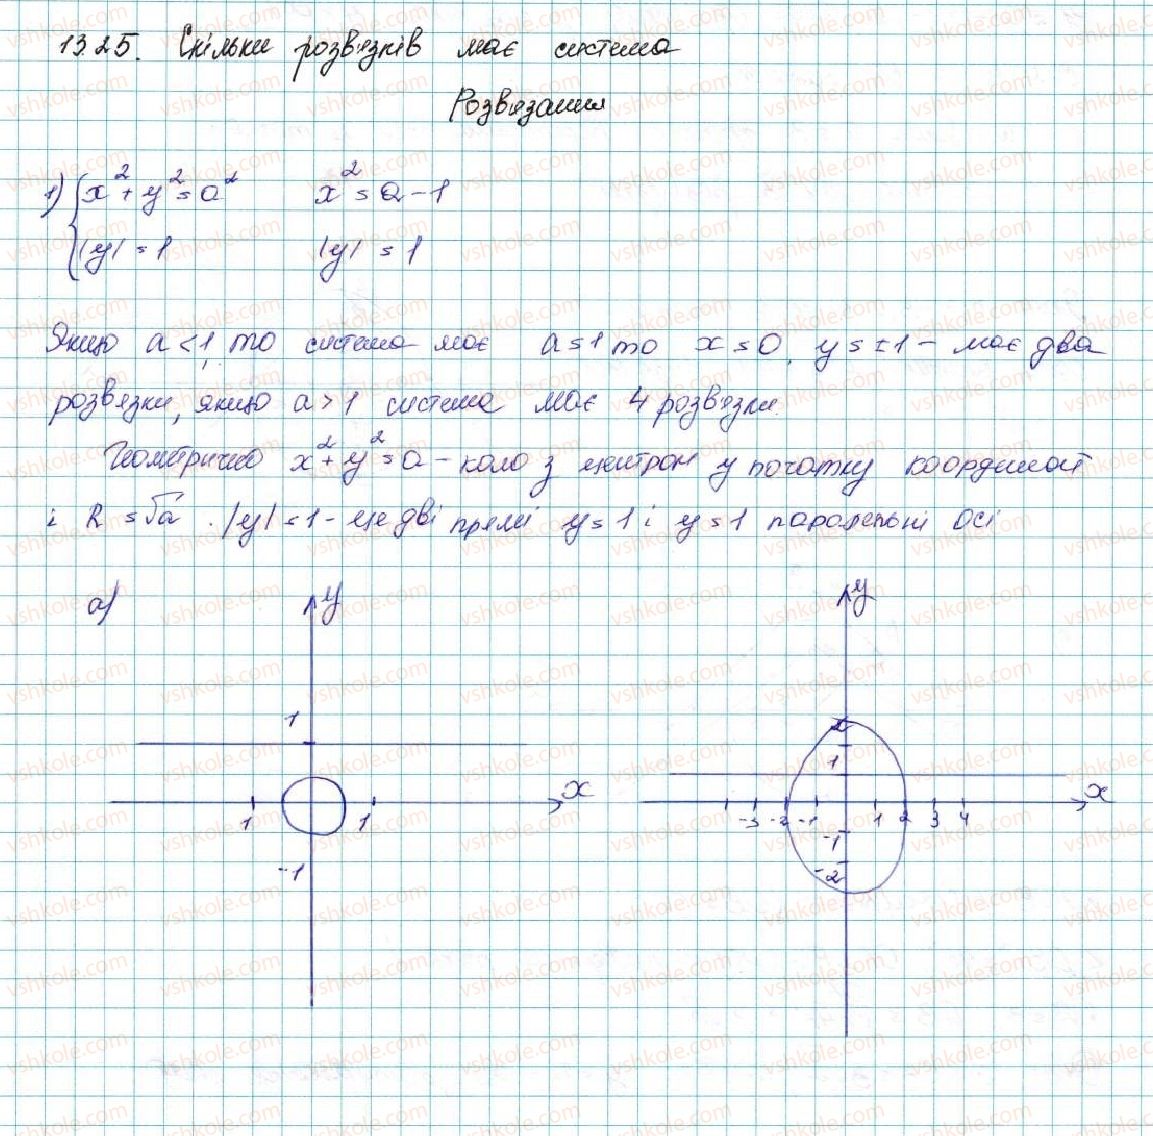 1325. Скільки розв'язків має система
Розв'язання
1) { x² + y² = a²    x² = a - 1
|y| = 1    |y| = 1
Якщо a < 1, то система має a = 1 то x = 0, y = ±1 - має два
розв'язки, якщо a > 1 система має 4 розв'язки.
Геометрично x² + y² = a - коло з центром у початку координат
і R = √a. |y| = 1 - це дві прямі y = 1 і y = 1 паралельні осі
а)
y
1
x
1 1
-1
y
2
1
x
-3 -2 -1 1 2 3 4
-1
-2
vshkole.com